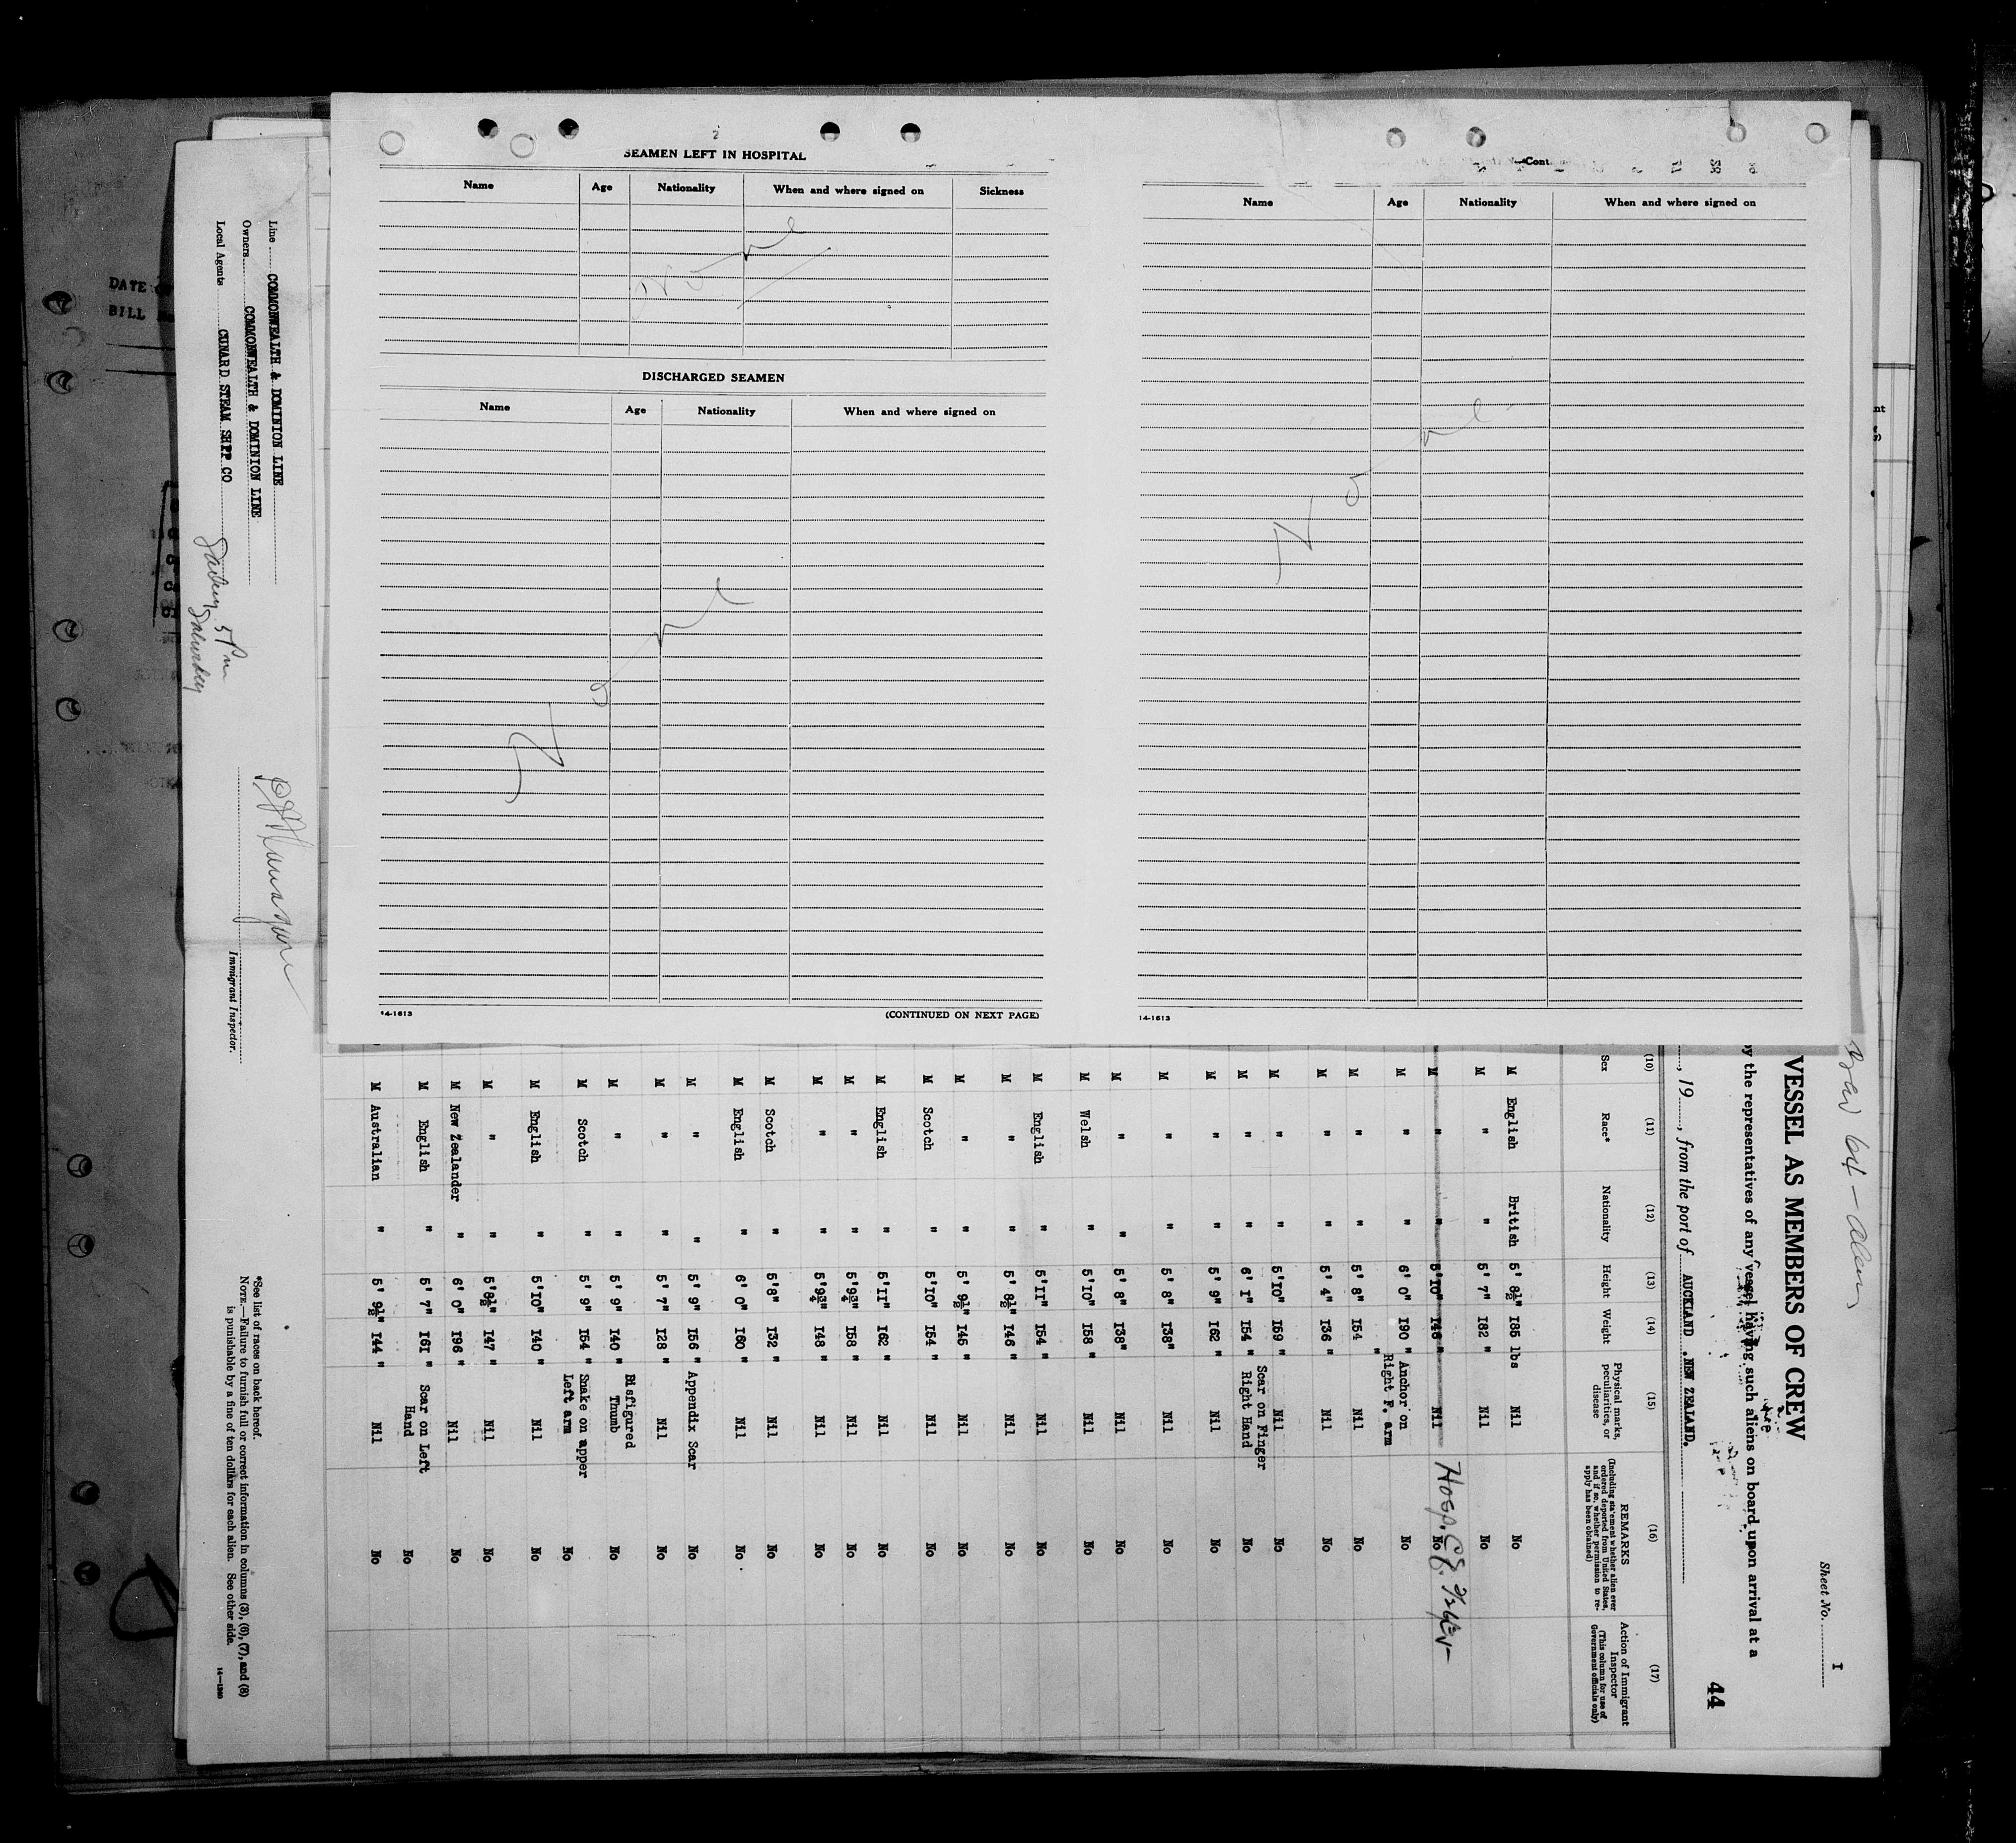 SEAMEN LEFT IN HOSPITAL
Name Age Nationality When and where signed on Sickness
None
DISCHARGED SEAMEN
Name Age Nationality When and where signed on
None
14-1613 (CONTINUED ON NEXT PAGE)
Cont
Name Age Nationality When and where signed on
None
14-1613
DATE
BILL
Line COMMONWEALTH & DOMINION LINE
Owners COMMONWEALTH & DOMINION LINE
Local Agents CUNARD STEAM SHPP CO
5 Pm
Saturday
Immigrant Inspector.
Sheet No. I
VESSEL AS MEMBERS OF CREW
by the representatives of any vessel having such aliens on board upon arrival at a
44
, 19 , from the port of AUCKLAND .NEW ZEALAND.
(10) (11) (12) (13) (14) (15) (16) (17)
Sex Race* Nationality Height Weight Physical marks, peculiarities, or disease REMARKS (Including statement whether alien ever ordered deported from United States, and if so, whether permission to reapply has been obtained) Action of Immigrant Inspector (This column for use of Government officials only)
M English British 5' 8½" 185 lbs Nil No
M " " 5' 7" 182 " Nil No
M " " 5'10" 146 " Nil No Hosp.
M " " 6' 0" 190 " Anchor on Right F. arm No
M " " 5' 8" 154 " Nil No
M " " 5' 4" 136 " Nil No
M " " 5'10" 159 Nil No
M " " 6' 1" 154 " Scar on Finger Right Hand No
M " " 5' 9" 162 " Nil No
M " " 5' 8" 138" Nil No
M " " 5' 8" 138" Nil No
M Welsh " 5'10" 158 " Nil
M English " 5'11" 154 " Nil No
M " " 5' 8½" 146 " Nil No
M " " 5' 9½" 145 " Nil No
M Scotch " 5'10" 154 " Nil No
M English " 5'11" 162 " Nil No
M " " 5'9¾" 158 " Nil No
M " " 5'9¾" 148 " Nil No
M Scotch " 5'8" 132 " Nil No
M English " 6' 0" 160 " Nil No
M " " 5' 9" 156 " Appendix Scar No
M " " 5' 7" 128 " Nil No
M " " 5' 9" 140 " Disfigured Thumb No
M Scotch " 5' 9" 154 " Snake on apper Left arm No
M English " 5'10" 140 " Nil No
M " " 5'8½" 147 " Nil No
M New Zealander " 6' 0" 196 " Nil No
M English " 5' 7" 161 " Scar on Left Hand No
M Australian " 5' 9½" 144 " Nil No
*See list of races on back hereof.
NOTE.—Failure to furnish full or correct information in columns (3), (6), (7), and (8)
is punishable by a fine of ten dollars for each alien. See other side.